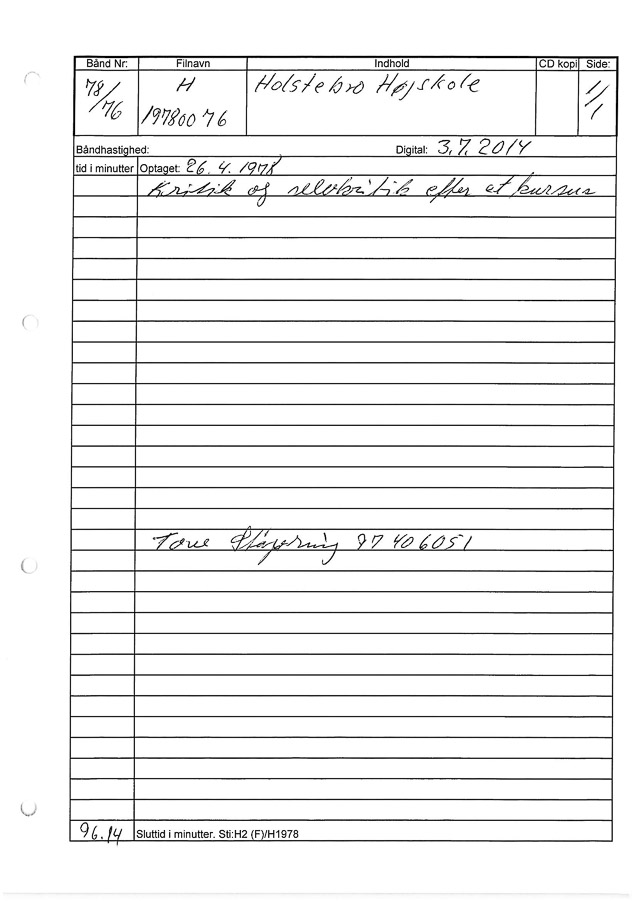 Bånd Nr: Filnavn Indhold CD kopi Side:
78/76 H Holstebro Højskole 1/1
19780076
Båndhastighed: Digital: 3.7.2014
tid i minutter Optaget: 26.4.1978
Kritik og selvkritik efter et kursus
97406051
96.14 Sluttid i minutter. Sti:H2 (F)/H1978